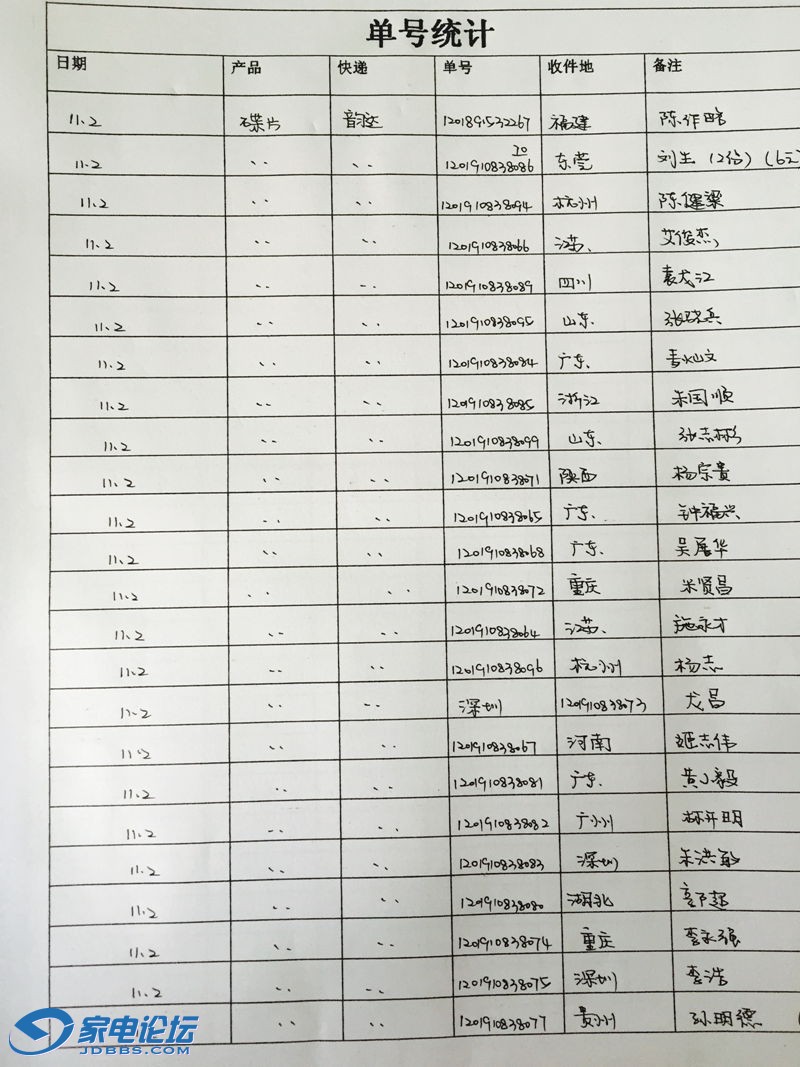 单号统计
日期 产品 快递 单号 收件地 备注
11.2 碟片 韵达 1201891532267 福建 陈作
11.2 〃 〃 1201910838086 70 东莞 刘生 (2份) (6元
11.2 〃 〃 1201910838094 杭州 陈健梁
11.2 〃 〃 1201910838066 江苏、 艾俊杰
11.2 〃 〃 1201910838089 四川 袁戈江
11.2 〃 〃 1201910838095 山东、 张晓兵
11.2 〃 〃 1201910838084 广东、
11.2 〃 〃 1201910838085 浙江 朱国顺
11.2 〃 〃 1201910838099 山东、 张志彬
11.2 〃 〃 1201910838071 陕西 杨宗贵
11.2 〃 〃 1201910838065 广东、 钟福兴
11.2 〃 〃 1201910838068 广东、 吴展华
11.2 〃 〃 1201910838072 重庆 米贤昌
11.2 〃 〃 1201910838064 江苏、 施永才
11.2 〃 〃 1201910838096 杭州 杨志
11.2 〃 〃 深圳 1201910838073 戈昌
11.2 〃 〃 1201910838067 河南 姬志伟
11.2 〃 〃 1201910838081 广东、 黄小毅
11.2 〃 〃 1201910838082 广州 林开明
11.2 〃 〃 1201910838083 深圳 朱洪敏
11.2 〃 〃 1201910838080 湖北
11.2 〃 〃 1201910838074 重庆 李永强
11.2 〃 〃 1201910838075 深圳 李浩
〃 〃 1201910838077 贵州 孙明德 (
家电论坛
JDBBS.COM